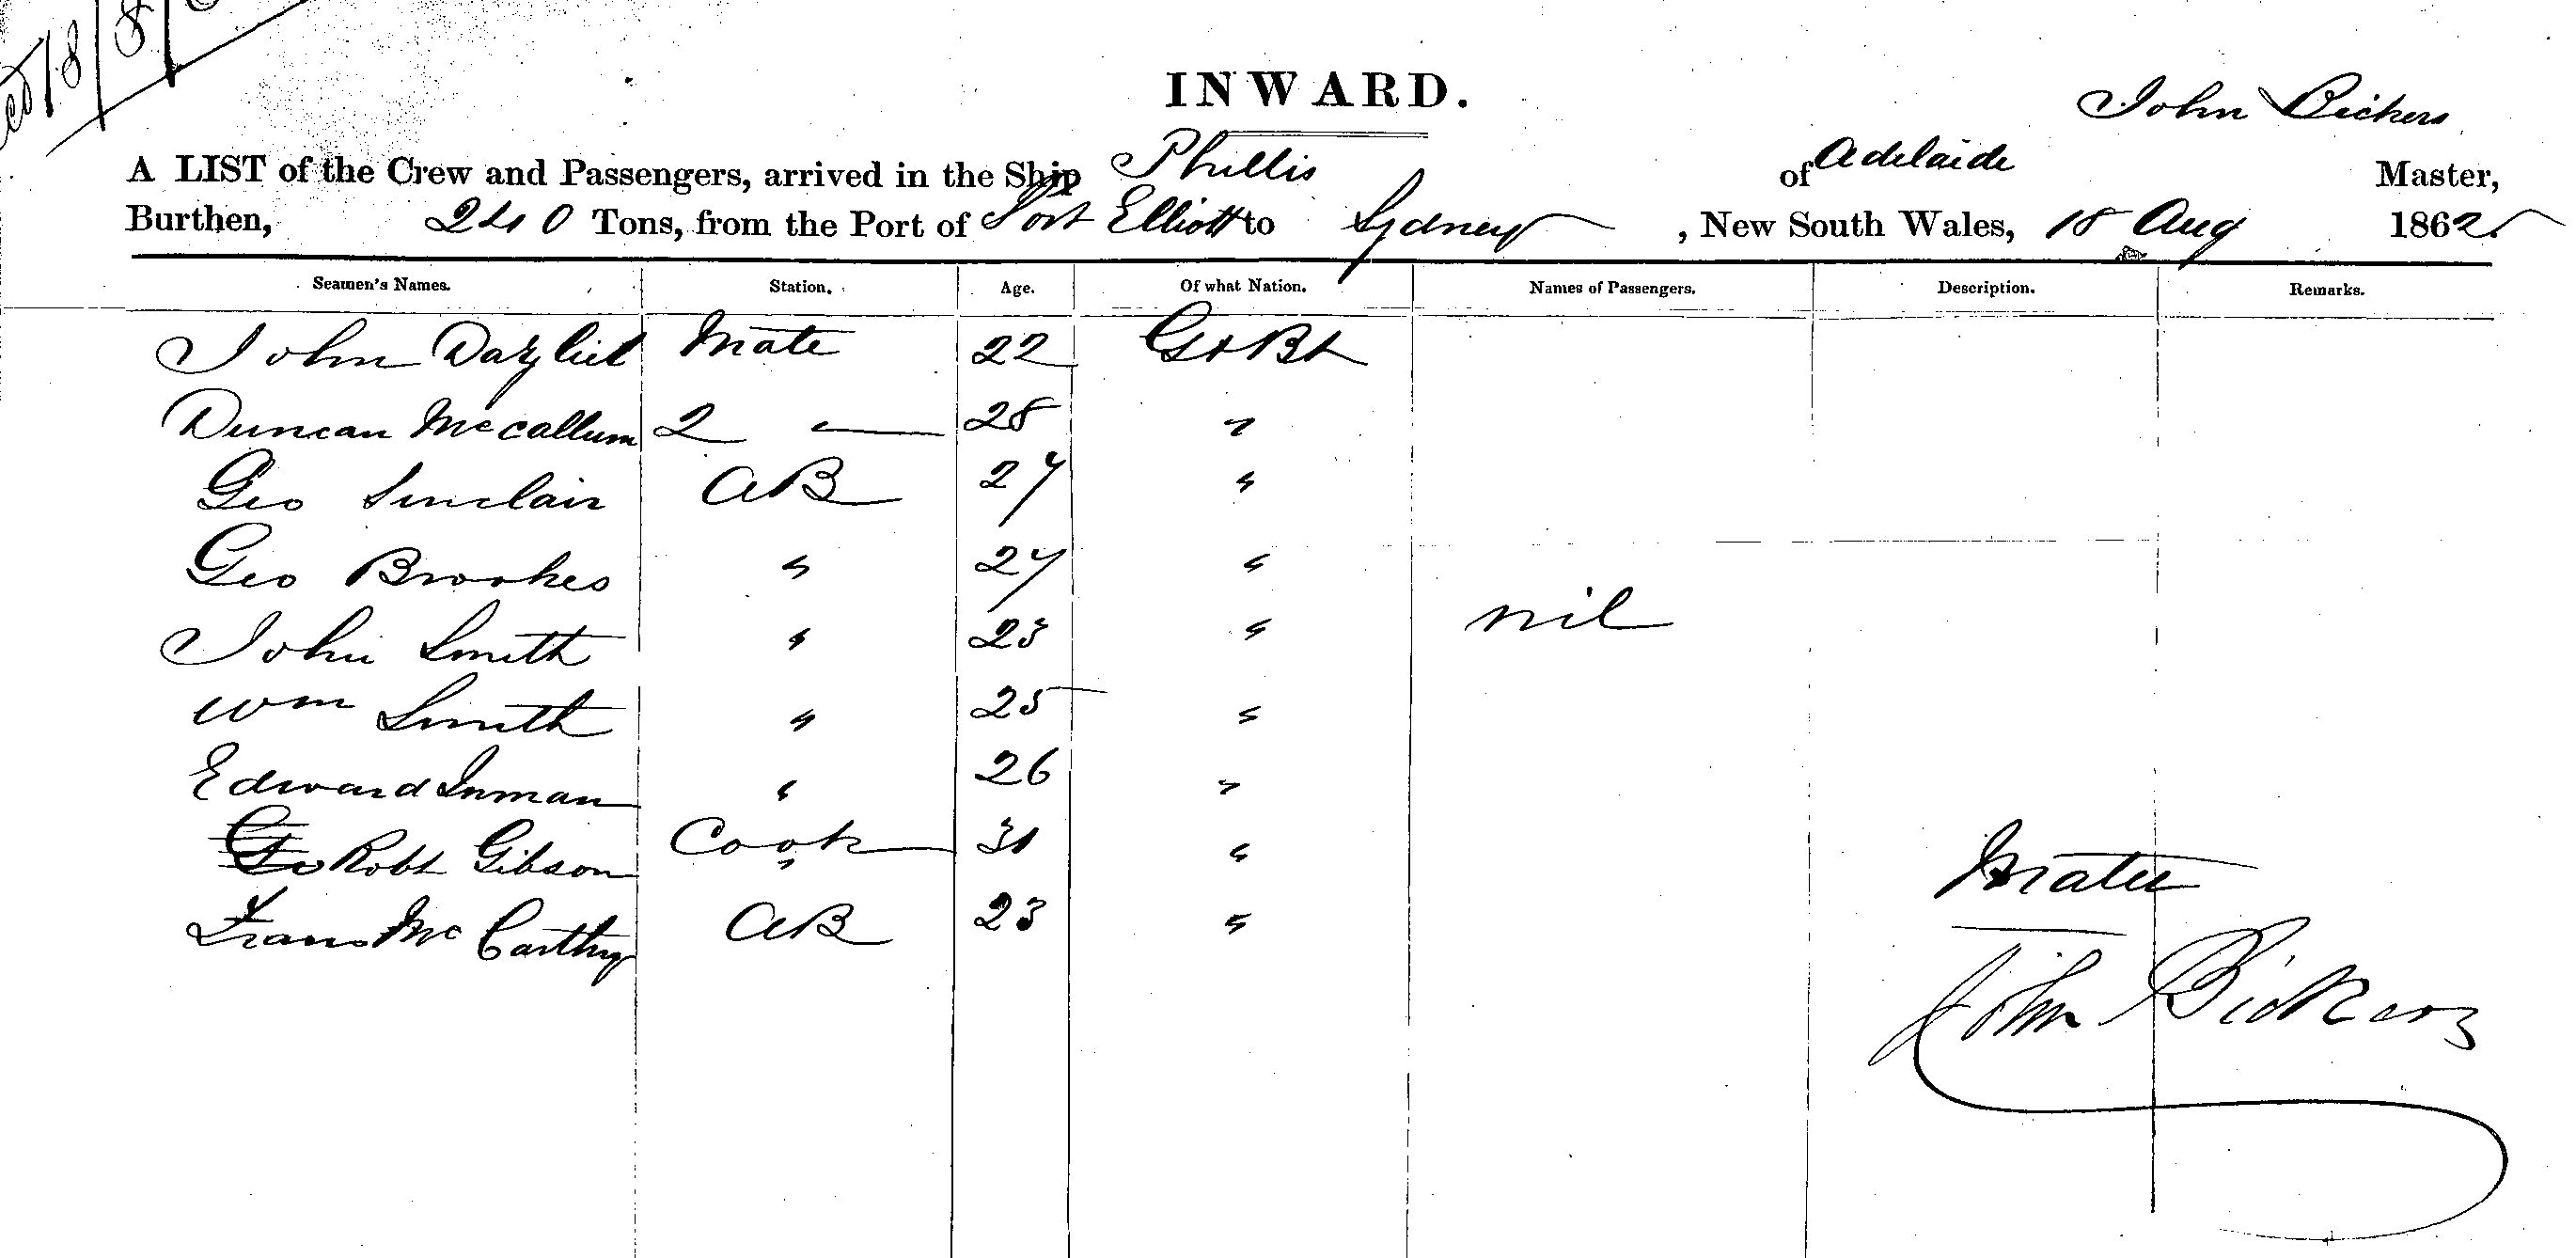 18/8/
INWARD.
John Bickers
A LIST of the Crew and Passengers, arrived in the Ship Phillis of Adelaide Master,
Burthen, 240 Tons, from the Port of Port Elliott to Sydney, New South Wales, 18 Aug 1862.
Seamen's Names. Station. Age. Of what Nation. Names of Passengers. Description. Remarks.
John Dazliel Mate 22 Gt Bt
Duncan Mccallum 2 — 28 "
Geo Sinclair AB 27 "
Geo Brookes " 27 "
John Smith " 23 " nil
Wm Smith " 25 "
Edward Inman " 26 "
Geo Robt Gibson Cook 31 "
Frans McCarthy AB 23 "
John Bickers